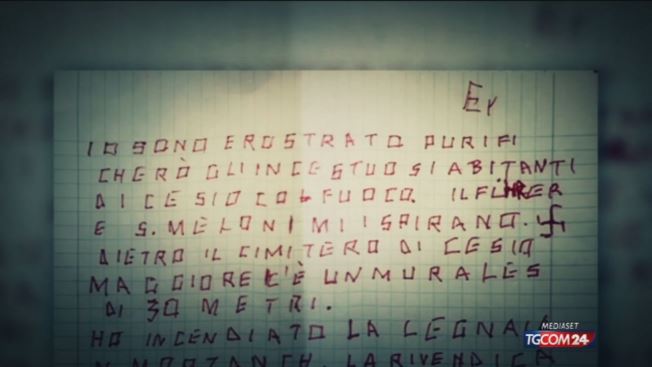 Er
IO SONO EROSTRATO PURIFI
CHERÒ GLI INCESTUOSI ABITANTI
DI CESIO COL FUOCO. IL FÜHRER
E S. MELONI MI ISPIRANO. 卐
DIETRO IL CIMITERO DI CESIO
MAGGIORE C'È UN MURALES
DI 30 METRI.
HO INCENDIATO LA LEGNAIA
LA RIVENDICA
MEDIASET
TGCOM24